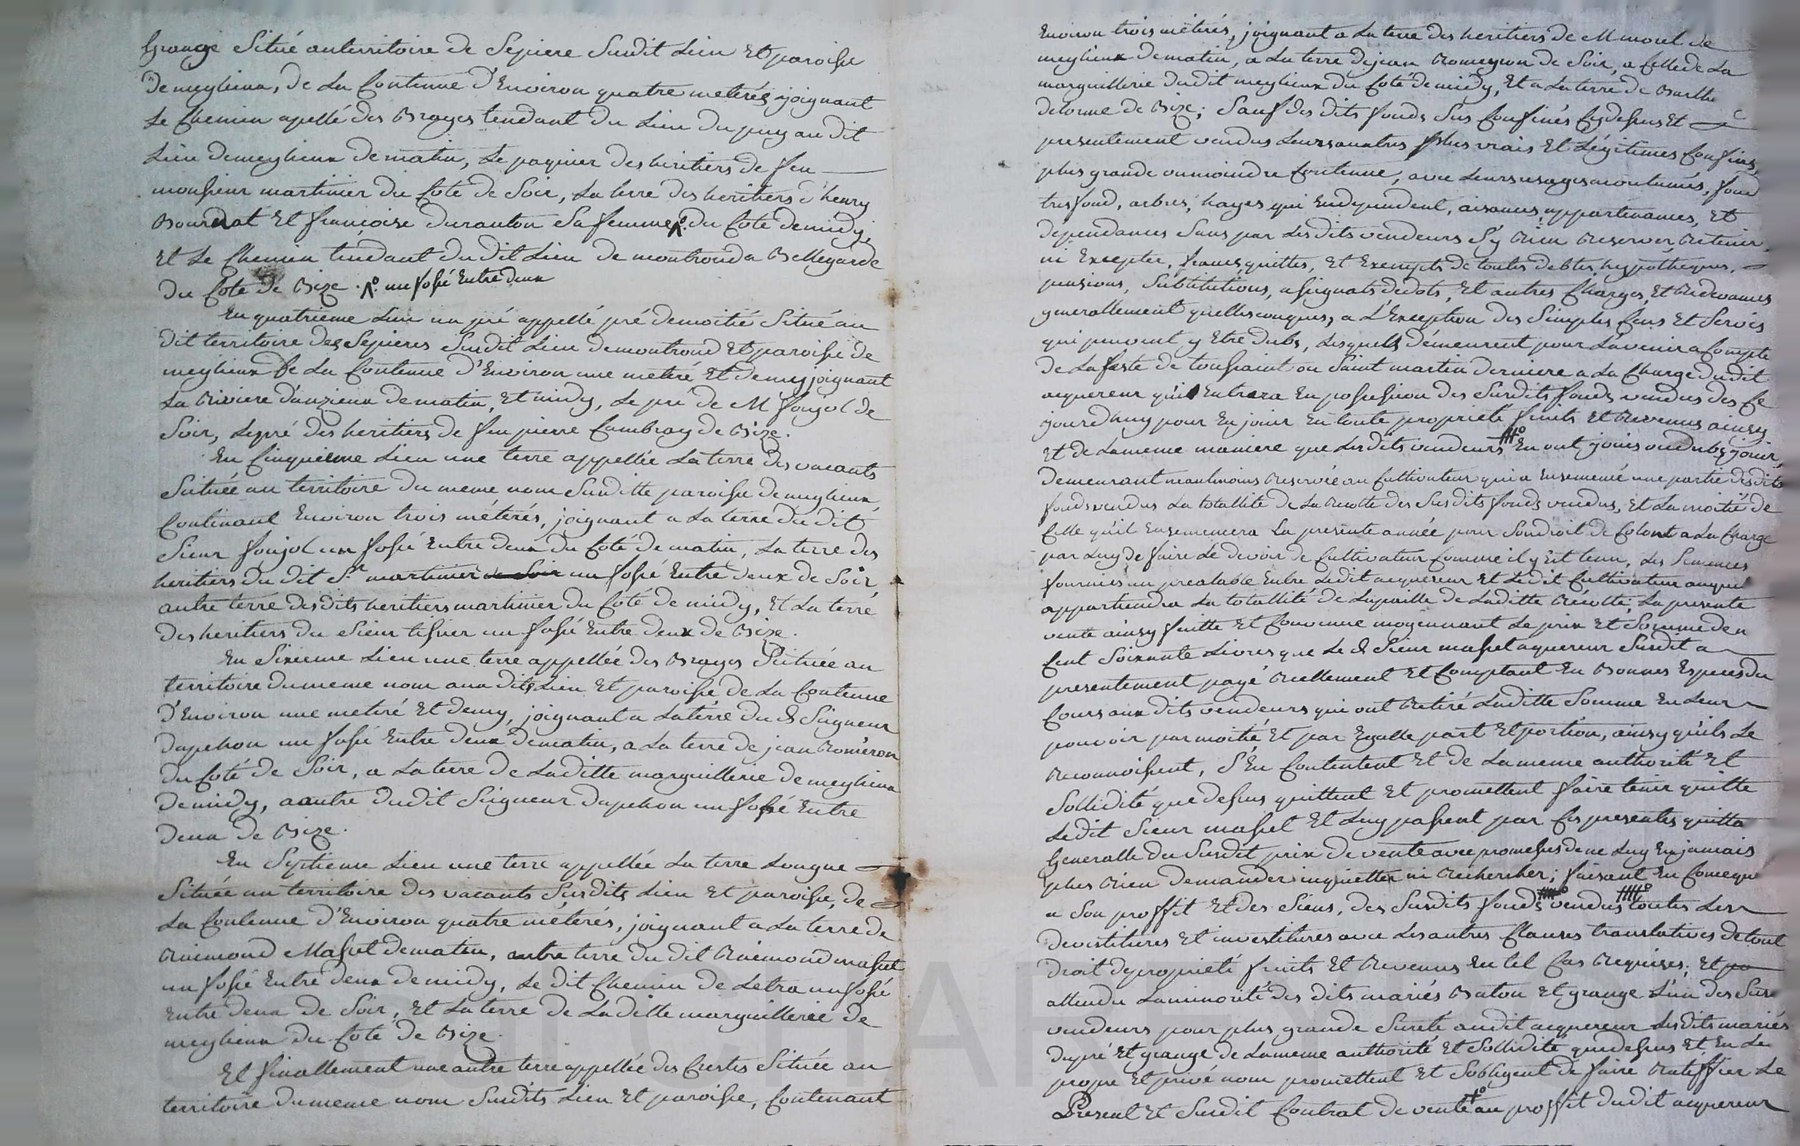 Grange Situé auterritoire de Sepiere Susdit Lieu Et paroisse
de meylieux, de La Contenue d'Environ quatre meterés, joignant
Le Chemin apellé des Brayes tendant du Lieu du puy au dit
Lieu demeylieux de matin, Le paquier des heritiers de feu
monsieur martinier du Coté de Soir, La terre des heritiers d'henry
Bourdat Et françoise duranton Sa femme du Coté demidy,
Et Le Chemin tendant du dit Lieu de montrond a Bellegarde
du Coté de Bize. un fossé Entre deux
En quatrieme Lieu un pré appellé pré demoitié Situé au
dit territoire des Sepieres Susdit Lieu demontrond Et paroisse de
meylieux de La Contenue d'Environ une meteré Et demy joignant
La Riviere d'anzieux de matin, Et midy, Le pré de M foujol de
Soir, Lepré des heritiers de feu pierre Cambray de Bize.
En Cinquieme Lieu une terre appellée La terre des vacants
Scituée au territoire du meme nom Susditte paroisse demeylieux
Contenant Environ trois meterés, joignant a La terre du dit
Sieur foujol un fossé Entre deux du Coté de matin, La terre des
heritiers du dit Sr martinier de Soir un fossé Entre deux de Soir
autre terre desdits heritiers martinier du Coté de midy, Et La terre
des heritiers du Sieur tissier un fossé Entre deux de Bize.
En Sixieme Lieu une terre appellée des Brayes Scituée au
territoire dumeme nom aux dits Lieu Et paroisse de La Contenue
d'Environ une meteré Et demy, joignant a La terre du Seigneur
dapchon un fossé Entre deux de matin, a La terre de jean Romeron
du Coté de Soir, a La terre de Laditte marguillerie de meylieux
demidy, a autre dudit Seigneur dapchon un fossé Entre
deux de Bize.
En Septieme Lieu une terre appellée La terre Longue
Située au territoire des vacants Susdits Lieu Et paroisse, de
La Contenue d'Environ quatre méterés, joignant a La terre de
Raimond Massel de matin, autre terre du dit Raimond massel
un fossé Entre deux de midy, Le dit Chemin de Letra un fossé
Entre deux de Soir, Et La terre de La ditte marguillerie de
meylieux du Coté de Bize.
Et finallement une autre terre appellée des Crestes Située au
territoire du meme nom Susdits Lieu Et paroisse, Contenant
Environ trois méterés, joignant a La terre des heritiers de M morel de
meylieux de matin, a La terre de jean Romeyron de Soir, a Celle de La
marguillerie dudit meylieux du Coté de midy, Et a La terre de Barthe
delorme de Bize; Sauf des dits fonds Sus Confinés Cy dessus Et
presentement vendus Leurs autres plus vrais Et Légitimes Confins,
plus grande ou moindre Contenue, avec Leurs usages acoutumés, fond
tresfond, arbres, hayes qui En dependent, aisances, appartenances, Et
dependances Sans par Les dits vendeurs S'y Rien Reserver Retenir
ni Excepter, francs quittes, Et Exempts de toutes debtes, hypotheques,
pensions, Substitutions, assignats de dots, Et autres Charges, Et Redevances
generallement quelles conques, a L'Exception des Simples Cens Et Servis
qui peuvent y Etre dubs, Lesquels demeurent pour L'avenir a Compter
de La feste de toussaint ou Saint martin derniere a La Charge du dit
aquereur qui Entrera En possession des Susdits fonds vendus des Ce
jourd'huy pour En jouir En toute propriété fruits Et Revenus ainsy
Et de La meme maniere que Les dits vendeurs En ont jouis ou du by jouir,
demeurant neanmoins Reservé au Cultivateur qui a Ensemencé une partie desdits
fonds vendus La totallité de La Recolte des Susdits fonds vendus, Et La moitié de
Celle qu'il Ensemencera La presente année pour Son droit de Colont a La Charge
par Luy de faire Le devoir de Cultivateur Comme il y Est tenu, Les Semences
fournies au prealable Entre Ledit aquereur Et Ledit Cultivateur auquel
appartiendra La totallité de La paille de Laditte Récolte; La presente
vente ainsy faitte Et Convenue moyennant Le prix Et Somme de
Cent Soixante Livres que Le Sieur massel aquereur Susdit a
presentement payé Réellement Et Comptant En Bonnes Especes du
Cours aux dits vendeurs qui ont Retiré Laditte Somme En Leur
pouvoir par moitié Et par Egalle part Et portion, ainsy qu'ils Le
Reconnoissent, S'En Contentent Et de La meme authorité Et
Sollidité que dessus quittent Et promettent faire tenir quitte
Ledit Sieur massel Et Luy passent par Ces presentes quitta
Generalle du Susdit prix de vente avec promesses de ne Luy En jamais
plus Rien demander inquietter ni Rechercher; faisant En Conseque
a Son proffit Et des Siens, des Susdits fonds vendus toutes Les
devestitures Et investitures avec Les autres Clauses translatives de tout
droit de proprieté fruits Et Revenus En tel Cas Requises; Et
attendu La minorité des dits mariés Baton Et grange L'un des Susd
vendeurs pour plus grande Sureté audit aquereur Lesdits mariés
dupré Et grange de La meme authorité Et Sollidité que dessus Et En Le
propre Et privé nom promettent Et S'obligent de faire Ratiffier Le
Present Et Susdit Contrat de vente au proffit dudit aquereur